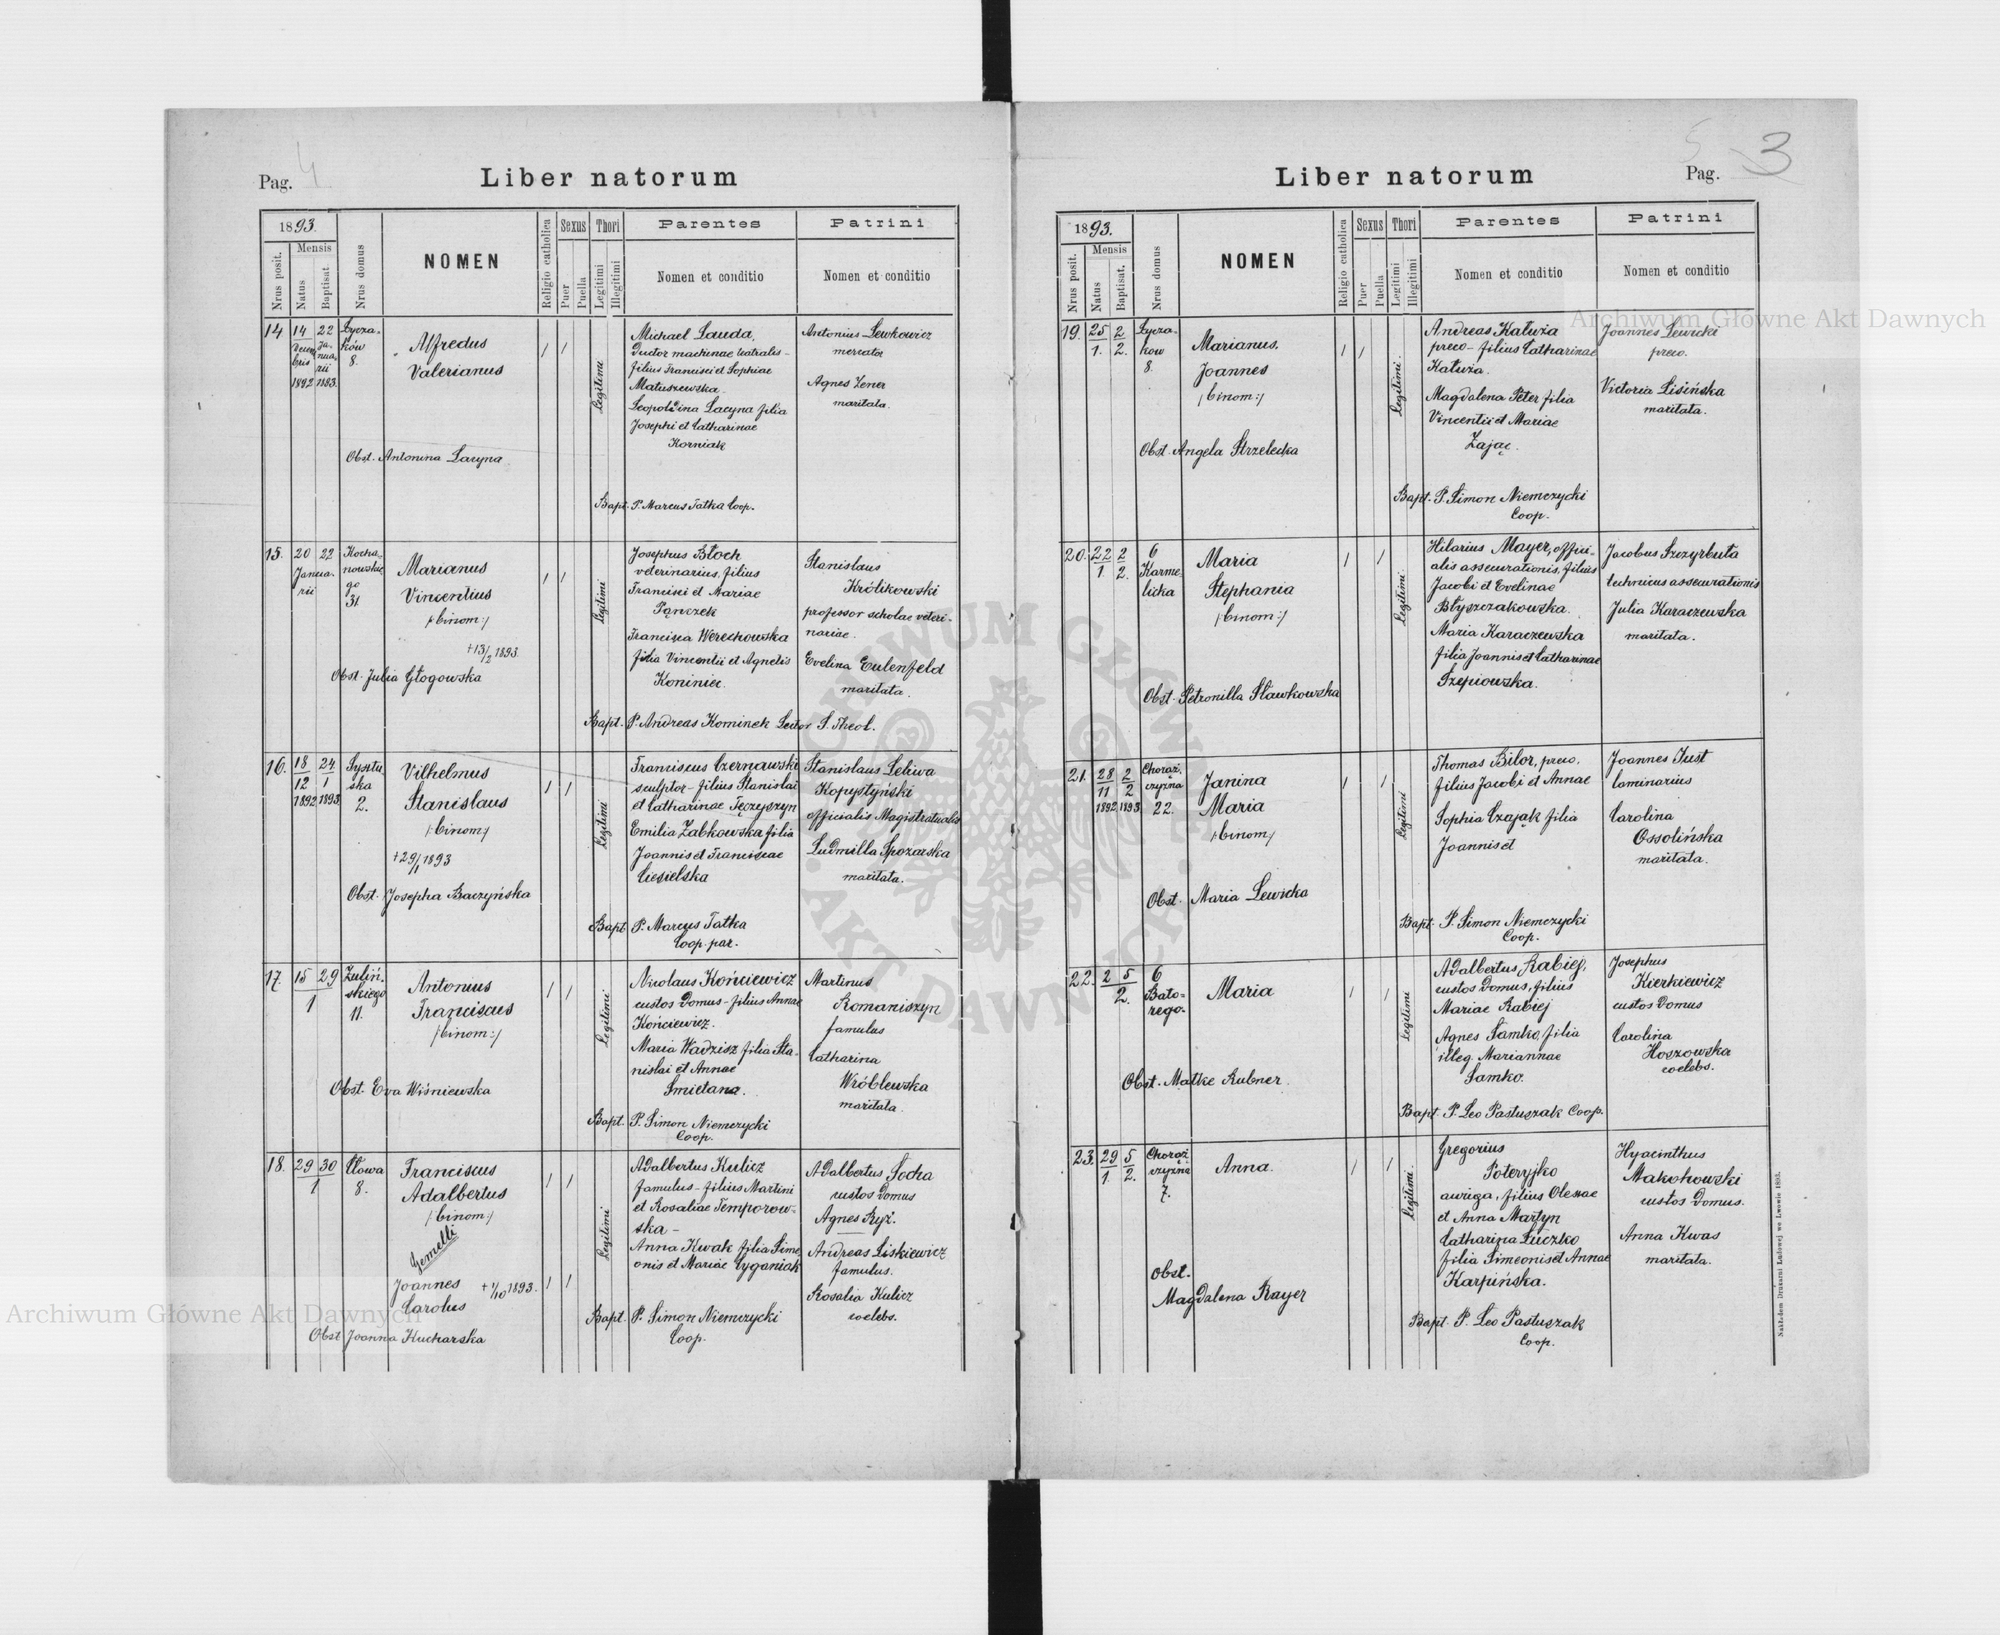 Pag. 4
Liber natorum
1893.
Nrus posit.
Mensis
Natus
Baptisat.
Nrus domus
NOMEN
Religio catholica
Sexus
Puer
Puella
Thori
Legitimi
Illegitimi
Parentes
Nomen et conditio
Patrini
Nomen et conditio
14
14 Decembris 1892
22 Januarii 1883.
Łyczaków 8.
Alfredus
Valerianus
Obst. Antonina Lacyna
Legitimi
Michael Lauda,
Ductor machinae teatralis -
filius Francisci et Sophiae
Matuszewska.
Leopoldina Lacyna filia
Josephi et Catharinae
Korniak
Bapt. P. Marcus Tatka Coop.
Antonius Lewkowicz
mercator
Agnes Zener
maritata.
15.
20 22
Januarii
Kochanowskiego
31
Marianus
Vincentius
/:binom:/
+13/2 1893.
Obst. Julia Głogowska
Legitimi
Josephus Błoch
veterinarius, filius
Francisci et Mariae
Pączek
Francisca Werechowska
filia Vincentii et Agnetis
Koniniec.
Bapt. P. Andreas Kominek Lector S. Theol.
Stanislaus
Królikowski
professor scholae veteri-
nariae.
Evelina Eulenfeld
maritata.
16.
18/12 1892
24/1 1893
Sykstuska
2.
Vilhelmus
Stanislaus
/:binom/
+29/1 1893
Obst. Josepha Baczyńska
Legitimi
Franciscus Czernawski
sculptor - filius Stanislai
et Catharinae Tęczyszyn
Emilia Zabkowska filia
Joannis et Franciscae
Ciesielska
Bapt P. Marcus Tatka
Coop. par.
Stanislaus Leliwa
Kopystyński
officialis Magistratualis
Ludmilla Spozarska
maritata.
17.
15 29
1
Zulińskiego
11.
Antonius
Franciscus
/:binom:/
Obst. Eva Wiśniewska
Legitimi
Nicolaus Kończewicz
custos Domus - filius Annae
Kończewicz.
Maria Wadzisz filia Sta-
nislai et Annae
Smietana.
Bapt. P. Simon Niemczycki
Coop.
Martinus
Romaniszyn
famulus
Catharina
Wróblewska
maritata.
18.
29 30
1
Cłowa
8.
Franciscus
Adalbertus
/:binom:/
Gemelli
Joannes +1/10 1893.
Carolus
Obst Joanna Kucharska
Legitimi
Adalbertus Kulicz
famulus - filius Martini
et Rosaliae Temporow-
ska -
Anna Kwak filia Sime
onis et Mariae Cyganiak
Bapt. P. Simon Niemczycki
Coop.
Adalbertus Socha
custos Domus
Agnes Ryż.
Andreas Liskiewicz
famulus.
Rosalia Kulicz
coelebs.
Liber natorum
Pag. 3
1893.
Nrus posit.
Mensis
Natus
Baptisat.
Nrus domus
NOMEN
Religio catholica
Sexus
Puer
Puella
Thori
Legitimi
Illegitimi
Parentes
Nomen et conditio
Patrini
Nomen et conditio
19.
25/1.
2/2.
Łyczakow
8.
Marianus,
Joannes
/binom:/
Obst. Angela Strzelecka
Legitimi.
Andreas Kałuża
preco - filius Catharinae
Kałuża.
Magdalena Peter filia
Vincentii et Mariae
Zając.
Bapt. P. Simon Niemczycki
Coop.
Joannes Lewicki
preco.
Victoria Lisińska
maritata.
20.
22/1
2/2.
6
Karmelicka
Maria
Stephania
/:binom:/
Obst. Petronilla Sławkowska
Legitimi.
Hilarius Mayer, offici-
alis assecurationis, filius
Jacobi et Evelinae
Błyszczakowska.
Maria Karaczewska
filia Joannis et Catharinae
Szepiowska.
Jacobus Szczyrbuta
technicus assecurationis
Julia Karaczewska
maritata.
21.
28/11 1892
2/2 1893
Chorążczyzna
22.
Janina
Maria
/:binom/
Obst. Maria Lewicka
Legitimi
Thomas Bilor, preco,
filius Jacobi et Annae
Sophia Czająk filia
Joannis et
Bapt. P. Simon Niemczycki
Coop.
Joannes Just
laminarius
Carolina
Ossolińska
maritata.
22.
2 5
2.
6
Batorego.
Maria
Obst. Matke Rubner.
Legitimi
Adalbertus Rabiej,
custos Domus, filius
Mariae Rabiej
Agnes Samko, filia
illeg. Mariannae
Samko.
Bapt. P. Leo Pastuszak Coop.
Josephus
Kierkiewicz
custos Domus
Carolina
Hoszowska
coelebs.
23.
29/1
5/2.
Chorążczyzna
7.
Anna.
Obst.
Magdalena Rayer
Legitimi.
Gregorius
Poteryjko
auriga, filius Olexae
et Anna Martyn
Catharina Łuczko
filia Simeonis et Annae
Karpińska.
Bapt. P. Leo Pastuszak
Coop.
Hyacinthus
Makohowski
custos Domus.
Anna Kwas
maritata.
Nakładem Drukarni Ludowej we Lwowie 1893.
Archiwum Główne Akt Dawnych
Archiwum Główne Akt Dawnych
ARCHIWUM GŁÓWNE AKT DAWNYCH